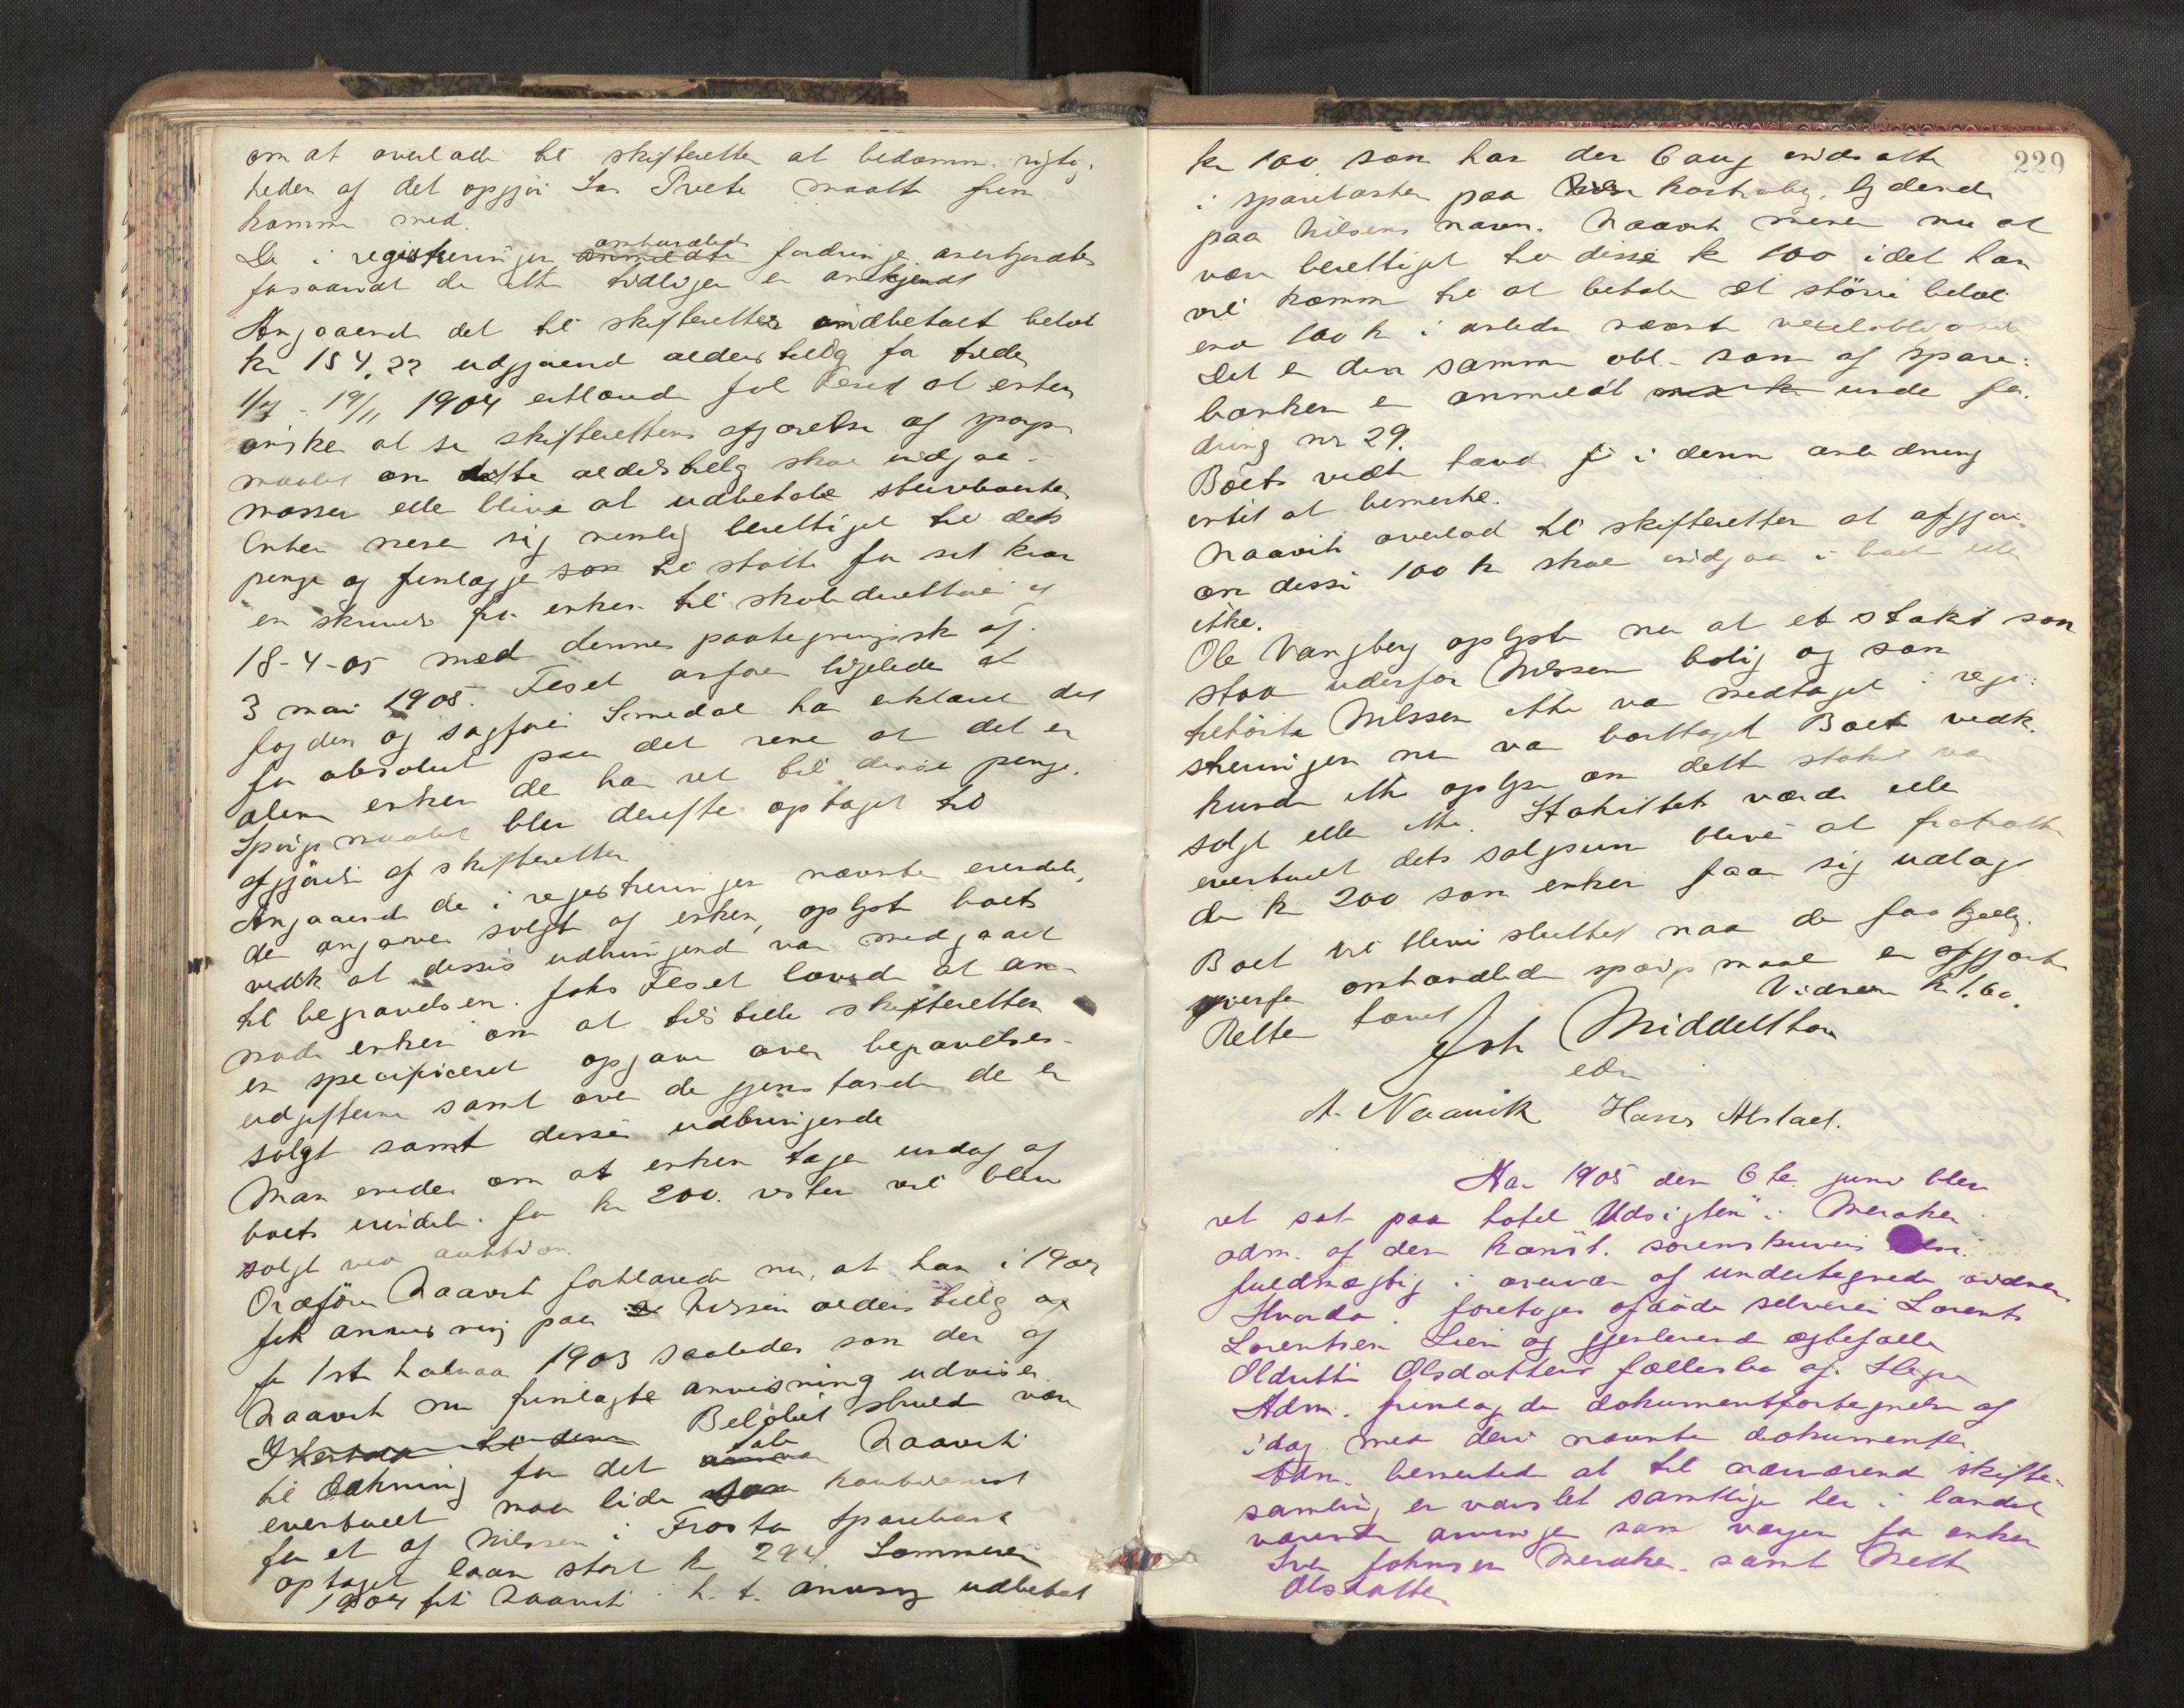 om at overlade til skifteretten at bedømme rigtig-
heden af det opgjør Lars Tvete maatte frem
komme med.
De i registreringen omhandlede anmeldte fordringer anerkjendtes
forsaavidt de ikke tidligere er anerkjendt
Angaaende det til skifteretten indbetalt beløb
kr 154,22 udgjørende alderstillæg for tiden
1/7 - 19/11 1904 erklærede Joh Feset at enken
ønsker at se skifterettens afgjørelse af spørgs
maalet om dette alderstillæg skal indgaa i
massen eller blive at udbetale stervboenken
Enken mener sig nemlig berettiget til dets
penge og fremlægger som til støtte for sit krav
en skrivelse fra enken til skoledirektøren af
18-4-05 med dennes paategningsk af
3 mai 1905. Feset anfører ligeledes at
fogden og sagfører Smedal har erklæret det
for absolut paa det rene at det er
alene enken der har ret til disse penge.
Spørgsmaalet blev derefter optaget til
afgjørelse af skifteretten
Angaaende de i registreringen nævnte eiendele,
der angaves solgt af enken, oplyste boets
vedk at disses udbringende var medgaaet
til begravelsen. Johs Feset lovede at an-
mode enken om at tilstille skifteretten
en specificeret opgave over begravelses-
udgifterne samt over de gjenstande der er
solgt samt disses udbringende
Man enedes om at enken tager undag af
boets eiendele for kr 200. resten vil blive
solgt ved auktion.
Ordfører Naavik forklarede nu, at han i 1904
fik anvisning paa Nilssens alderstillæg af
for 1ste halvaar 1903 saaledes som den af
Naavik nu fremlagte anvisning udviser.
Beløbet skulde være
til dækning for det tab Naavik
eventuelt maa lide kautionist
for et af Nilssen i Frosta Sparebank
optaget laan stort kr 294. Sommeren
1904 fik Naavik i h. t. anvisng udbetalt
229
kr 100 som han den 6 aug indsatte
i sparebanken paa kontrabog, lydende
paa Nilsens navn. Naavik mener nu at
være berettiget til disse kr 100 idet han
vil komme til at betale et større beløb
end 100 kr i anledn nævnte vexelobligation
Det er den samme obl. som af spare-
banken er anmeldt under for-
dring nr 29.
Boets vedk havde i denne anledning
intet at bemerke.
Naavik overlod til skifteretten at afgjøre
om disse 100 kr skal indgaa i boet eller
ikke.
Ole Vangberg oplyste nu at et stakit som
staar udenfor Nilssens bolig og som
tilhørte Nilssen ikke var medtaget i regi-
streringen nu var borttaget Boets vedk.
kunde ikke oplyse om dette stakit var
solgt eller ikke. Stakittets værdi eller
eventuelt dets salgssum bliver at fratrække
de kr 200 som enken faar sig udlagt
Boet vil blive sluttet naar de forskjellige
ovenfor omhandlede spørgsmaal er afgjort
Vidnerne kr 1.60.
Retten hævet
Joh Middelthon
edr
A. Naavik Hans Alstad.
Aar 1905 den 6te juni blev
ret sat paa hotel "Udsigten" i Meraker
adm. af den konst. sorenskriver edsv.
fuldmægtig i overvær af undertegnede vidner
Hvorda foretoges afdøde selveier Lorents
Lorentsen Lien og gjenlevende ægtefælle
Oldrette Olsdatters fællesbo af Hegra
Adm. fremlagde dokumentfortegnelse af
idag med deri nævnte dokumenter.
Adm. bemerkede at til nærværende skifte-
samling er varslet samtlige her i landet
værende arvinger samt værgen for enken
Iver Johnsen Meraker samt Mett
Olsdatter